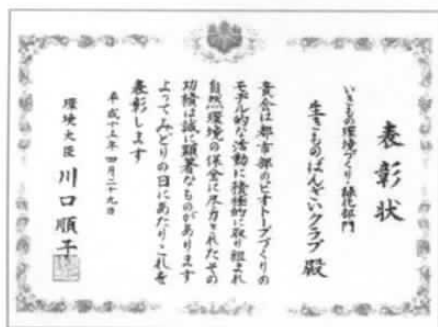 表彰状
いきもの環境づくり・緑化部門
生きものばんざいクラブ殿
貴会は都市部のビオトープづくりの
モデル的な活動に積極的に取り組まれ
自然環境の保全に尽力されたその
功績は誠に顕著なものがあります
よってみどりの日にあたりこれを
表彰します
平成十三年四月二十九日
環境大臣 川口順子